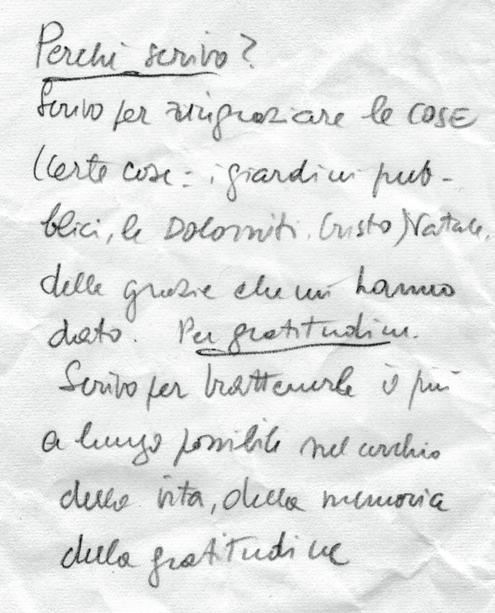 Perché scrivo?
Scrivo per ringraziare le COSE
(certe cose: i giardini pub-
blici, le Dolomiti, Cristo) Natale,
delle grazie che mi hanno
dato. Per gratitudine.
Scrivo per trattenerle il più
a lungo possibile nel cerchio
della vita, della memoria
della gratitudine